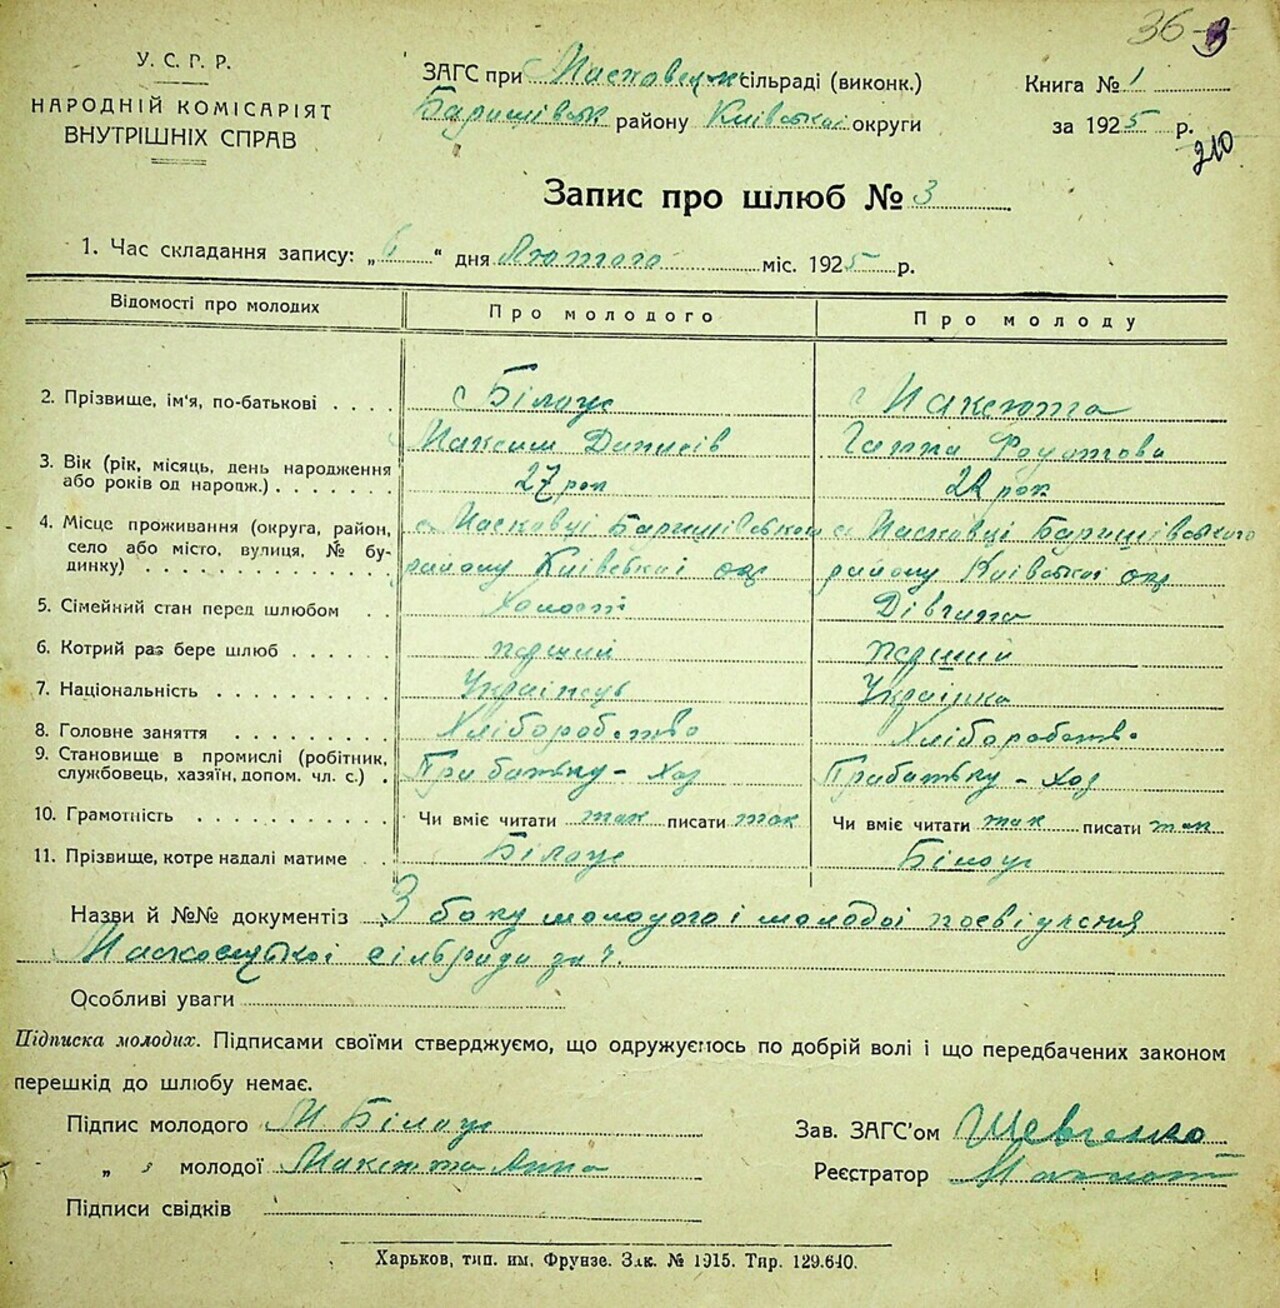 36
У. С. Р. Р.
НАРОДНІЙ КОМІСАРІЯТ
ВНУТРІШНІХ СПРАВ
ЗАГС при Пасковецьк сільраді (виконк.)
Баришівськ району Київської округи
Книга № 1
за 1925 р.
210
Запис про шлюб № 3
1. Час складання запису: „6“ дня Лютого міс. 1925 р.
Відомості про молодих
Про молодого
Про молоду
2. Прізвище, ім'я, по-батькові
Білоус
Максим Данилів
Максюта
Ганна Федотова
3. Вік (рік, місяць, день народження
або років од народж.)
27 рок
22 рок
4. Місце проживання (округа, район,
село або місто, вулиця, № бу-
динку)
с. Пасковці Баришівського
району Київської окр
с. Пасковці Баришівського
району Київської окр
5. Сімейний стан перед шлюбом
Холостий
Дівчина
6. Котрий раз бере шлюб
перший
перший
7. Національність
Українець
Українка
8. Головне заняття
Хліборобство
Хліборобство
9. Становище в промислі (робітник,
службовець, хазяїн, допом. чл. с.)
При батьку - хоз
При батьку - хоз
10. Грамотність
Чи вміє читати так писати так
Чи вміє читати так писати так
11. Прізвище, котре надалі матиме
Білоус
Білоус
Назви й №№ документів З боку молодого і молодої посвідчення
сільради за ч.
Особливі уваги
Підписка молодих. Підписами своїми стверджуємо, що одружуємось по добрій волі і що передбачених законом
перешкід до шлюбу немає.
Підпис молодого М Білоус
„ молодої Максюта Анна
Підписи свідків
Зав. ЗАГС'ом Шевченко
Реєстратор
Харьков, тип. им. Фрунзе. Зак. № 1915. Тир. 129.640.